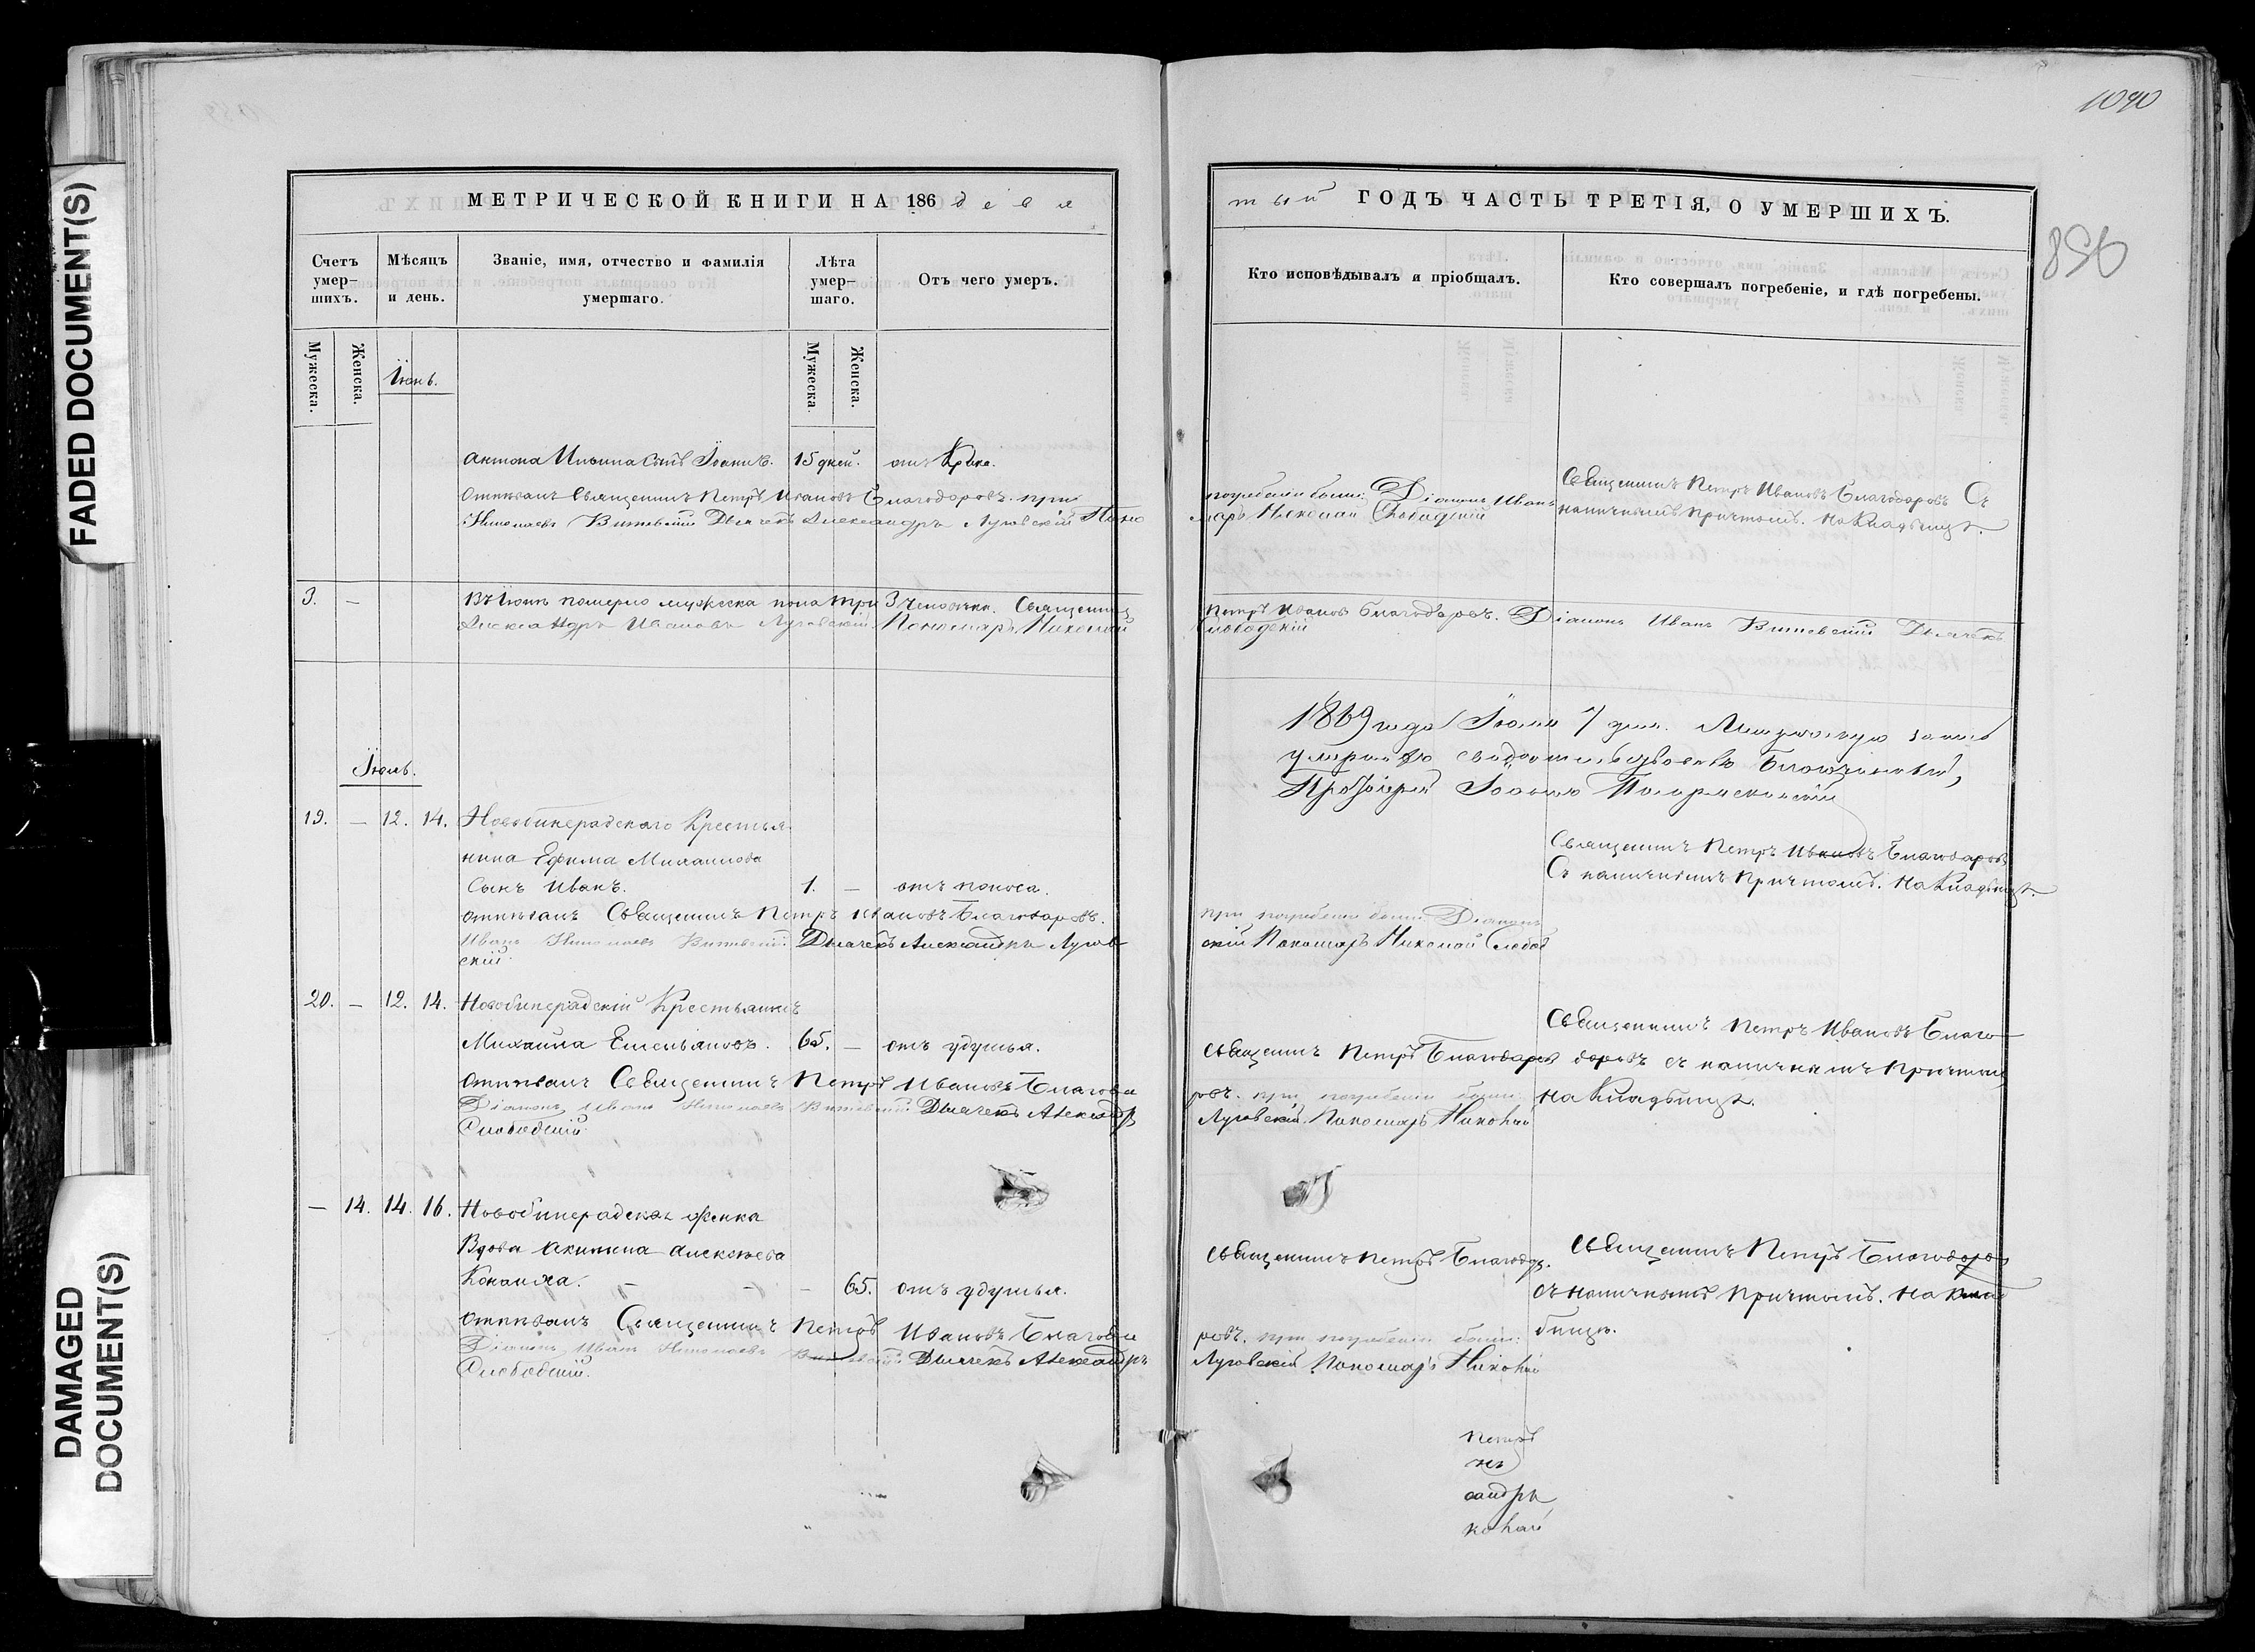 FADED DOCUMENT(S)
DAMAGED DOCUMENT(S)
1090
958
МЕТРИЧЕСКОЙ КНИГИ НА 186 девя
Счетъ умер-шихъ.
Мѣсяцъ и день.
Званіе, имя, отчество и фамилія умершаго.
Лѣта умер-шаго.
Отъ чего умеръ.
Мужеска.
Женска.
Мужеска.
Женска.
Іюнь.
Антона Ильина сынъ Іоаннъ. 15 дней. отъ Крика.
Отпѣвалъ Священникъ Петръ Ивановъ Благодаровъ. при
Николаевъ Витевскій Дьячекъ Александръ Луговскій Поно
3. — Въ Іюнѣ померло мужеска пола три 3 человѣка. Священникъ
Александръ Ивановъ Луговскій. Пономарь Николай
Іюль.
19. — 12. 14. Новобинерадскаго Крестья-
нина Ефима Михаилова
сынъ Иванъ. 1. — отъ поноса.
отпѣвалъ Священникъ Петръ Ивановъ Благодаровъ.
Иванъ Николаевъ Витевскій Дьячекъ Александръ Лугов
скій
20. — 12. 14. Новобинерадскій Крестьянинъ
Михаила Емельяновъ. 65. — отъ удушья.
Отпѣвалъ Священникъ Петръ Ивановъ Благода
Діаконъ Иванъ Николаевъ Витевскій Дьячекъ Александръ
Слободскій
— 14. 14. 16. Новобинерадская женка
Вдова Акилина Алексѣева
65. отъ удушья.
Отпѣвалъ Священникъ Петръ Ивановъ Благода
Діаконъ Иванъ Николаевъ Витевскій Дьячекъ Александръ
Слободскій.
тый ГОДЪ ЧАСТЬ ТРЕТІЯ, О УМЕРШИХЪ.
Кто исповѣдывалъ и пріобщалъ.
Кто совершалъ погребеніе, и гдѣ погребены.
погребеніи были: Діаконъ Иванъ
марь Николай Слободскій
Священникъ Петръ Ивановъ Благодаровъ Съ
наличнымъ причтомъ. На Кладбищѣ.
Петръ Ивановъ Благодаровъ. Діаконъ Иванъ Витевскій Дьячекъ
Слободскій
1869 года Іюля 7 дня.
свидѣтельствовалъ Благочинный,
Протоіерей Іоаннъ
Священникъ Петръ Ивановъ Благодаровъ
Съ наличнымъ причтомъ. На Кладбищѣ.
при погребеніи были: Діаконъ
скій Пономарь Николай Слобод
Священникъ Петръ Ивановъ Благо-
Священникъ Петръ Благодаров
даровъ съ наличнымъ причтомъ
ровъ. при погребеніи были:
на Кладбищѣ.
Луговскій. Пономарь Николай
Священникъ Петръ Благода.
Священникъ Петръ Благодаров
съ наличнымъ причтомъ. На Клад
ровъ. при погребеніи были:
бищѣ.
Луговскій Пономарь Николай
Петръ
нъ
сандръ
колай